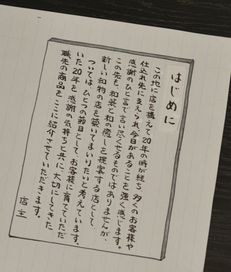 はじめに
この地に店を構えて20年の時が経ち 多くのお客様や
仕入れ先に支えられ 今日があることを強く感じます。
感謝のひと言で言い尽くせるものではありませんが、
この先も、和装と和の癒しを提案する店として
新しい和物の店を築いてまいりたいと考えています。
ついては、ひとつの節目として、お客様に育てていただ
いた20年を感謝の気持ちと共に、大切にしてきた
職先の商品をここに紹介させていただきます。
店主